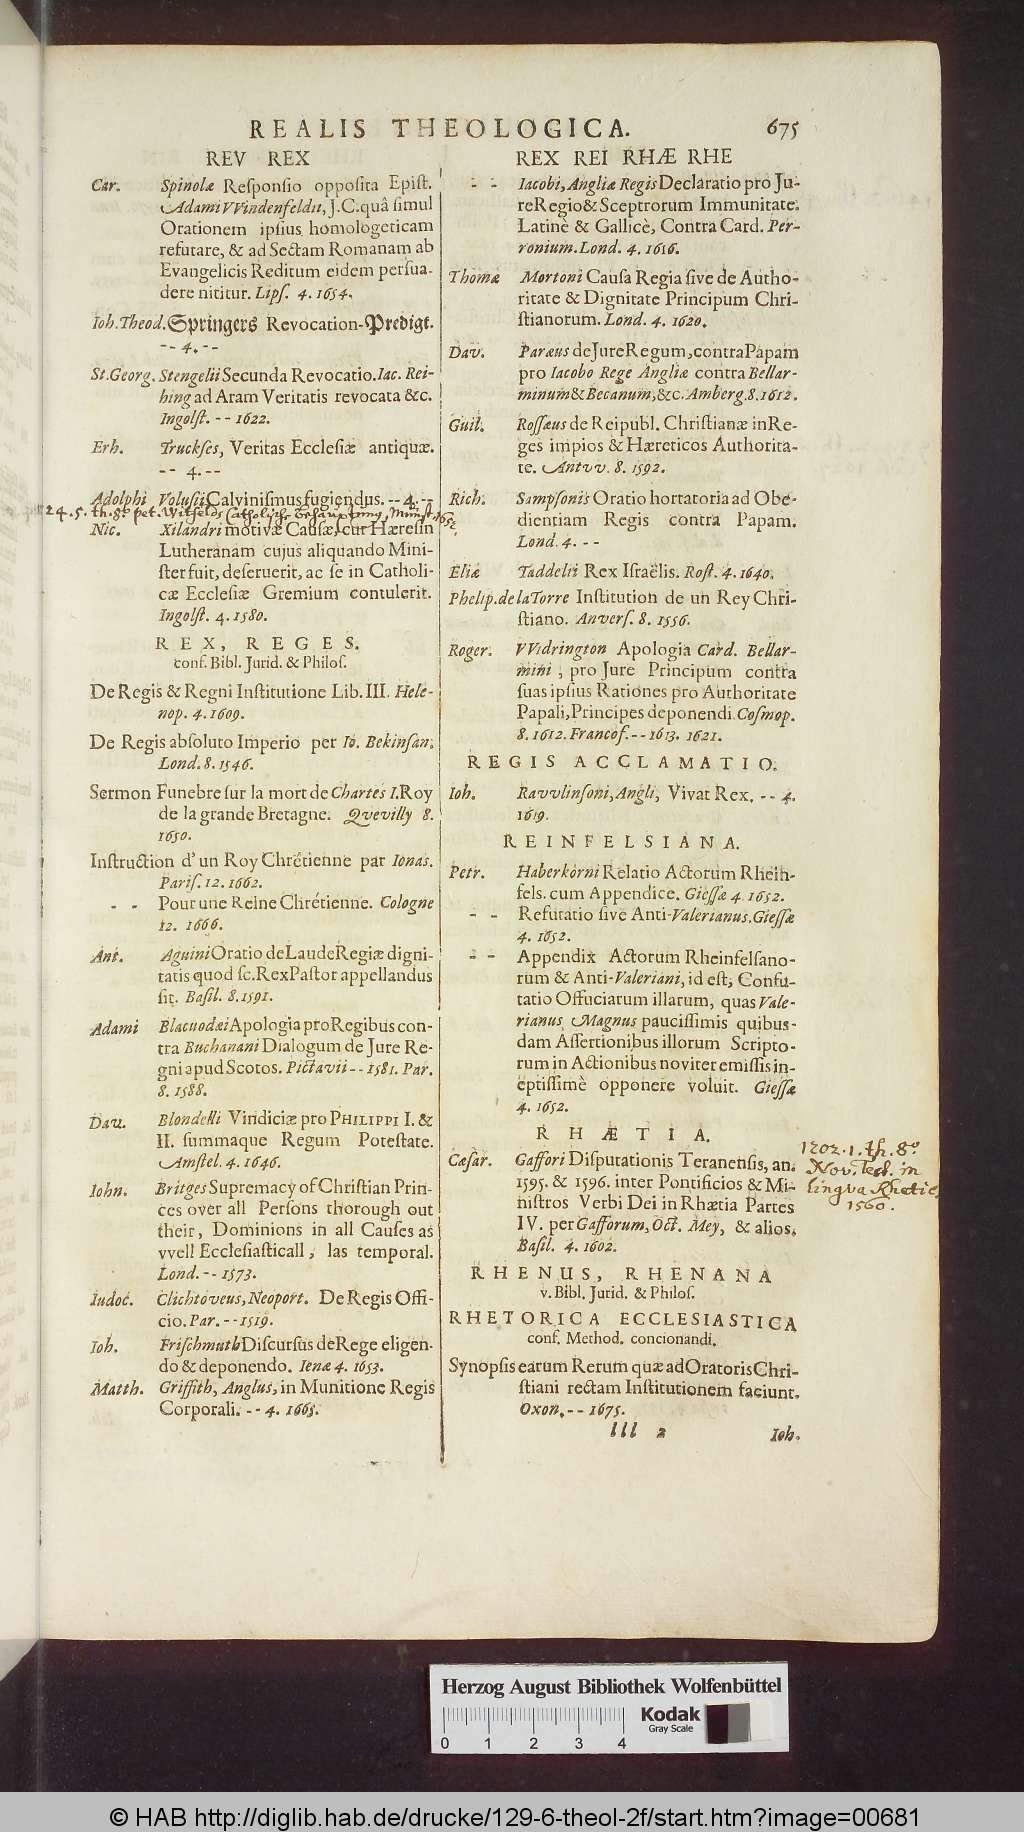 REALIS THEOLOGICA. 675
REV REX
Car. Spinolæ Responsio opposita Epist.
Adami VVindenfeldii, J.C. quâ simul
Orationem ipsius homologeticam
refutare, & ad Sectam Romanam ab
Evangelicis Reditum eidem persua-
dere nititur. Lips. 4. 1654.
Ioh. Theod. Springers Revocation-Predigt.
-- 4. --
St. Georg. Stengelii Secunda Revocatio. Iac. Rei-
hing ad Aram Veritatis revocata &c.
Ingolst. -- 1622.
Erh. Truckses, Veritas Ecclesiæ antiquæ.
-- 4. --
Adolphi Volusii Calvinismus fugiendus. -- 4. --
24. 5. th. 8º pet. Münst. 1652.
Nic. Xilandri motivæ Causæ, cur Hæresin
Lutheranam cujus aliquando Mini-
ster fuit, deseruerit, ac se in Catholi-
cæ Ecclesiæ Gremium contulerit.
Ingolst. 4. 1580.
REX, REGES.
conf. Bibl. Jurid. & Philos.
De Regis & Regni Institutione Lib. III. Hele-
nop. 4. 1609.
De Regis absoluto Imperio per Io. Bekinsan.
Lond. 8. 1546.
Sermon Funebre sur la mort de Chartes I. Roy
de la grande Bretagne. Qvevilly 8.
1650.
Instruction d' un Roy Chrétienne par Ionas.
Paris. 12. 1662.
- - Pour une Reine Chrétienne. Cologne
12. 1666.
Ant. Aguini Oratio de Laude Regiæ digni-
tatis quod sc. Rex Pastor appellandus
sit. Basil. 8. 1591.
Adami Blacuodæi Apologia pro Regibus con-
tra Buchanani Dialogum de Jure Re-
gni apud Scotos. Pictavii -- 1581. Par.
8. 1588.
Dav. Blondelli Vindiciæ pro PHILIPPI I. &
II. summaque Regum Potestate.
Amstel. 4. 1646.
Iohn. Britges Supremacy of Christian Prin-
ces over all Persons thorough out
their, Dominions in all Causes as
vvell Ecclesiasticall, las temporal.
Lond. -- 1573.
Iudoc. Clichtoveus, Neoport. De Regis Offi-
cio. Par. -- 1519.
Ioh. Frischmuth Discursus de Rege eligen-
do & deponendo. Ienæ 4. 1653.
Matth. Griffith, Anglus, in Munitione Regis
Corporali. -- 4. 1665.
REX REI RHÆ RHE
- - Iacobi, Angliæ Regis Declaratio pro Ju-
re Regio & Sceptrorum Immunitate.
Latinè & Gallicè, Contra Card. Per-
ronium. Lond. 4. 1616.
Thomæ Mortoni Causa Regia sive de Autho-
ritate & Dignitate Principum Chri-
stianorum. Lond. 4. 1620.
Dav. Paræus de Jure Regum, contra Papam
pro Iacobo Rege Angliæ contra Bellar-
minum & Becanum, &c. Amberg. 8. 1612.
Guil. Rossæus de Reipubl. Christianæ in Re-
ges impios & Hæreticos Authorita-
te. Antvv. 8. 1592.
Rich. Sampsonis Oratio hortatoria ad Obe-
dientiam Regis contra Papam.
Lond. 4. --
Eliæ Taddelii Rex Israëlis. Rost. 4. 1640.
Phelip. de la Torre Institution de un Rey Chri-
stiano. Anvers. 8. 1556.
Roger. VVidrington Apologia Card. Bellar-
mini, pro Jure Principum contra
suas ipsius Rationes pro Authoritate
Papali, Principes deponendi. Cosmop.
8. 1612. Francof. -- 1613. 1621.
REGIS ACCLAMATIO.
Ioh. Ravvlinsoni, Angli, Vivat Rex. -- 4.
1619.
REINFELSIANA.
Petr. Haberkorni Relatio Actorum Rhein-
fels. cum Appendice. Giessæ 4. 1652.
- - Refutatio sive Anti-Valerianus. Giessæ
4. 1652.
- - Appendix Actorum Rheinfelsano-
rum & Anti-Valeriani, id est, Confu-
tatio Offuciarum illarum, quas Vale-
rianus Magnus paucissimis quibus-
dam Assertionibus illorum Scripto-
rum in Actionibus noviter emissis in-
eptissimè opponere voluit. Giessæ
4. 1652.
RHÆTIA.
Cæsar. Gaffori Disputationis Teranensis, an.
1595. & 1596. inter Pontificios & Mi-
nistros Verbi Dei in Rhætia Partes
IV. per Gafforum, Oct. Mey, & alios.
Basil. 4. 1602.
1202. 1. th. 8º
Nov. Test. in
lingva Rhetic.
1560.
RHENUS, RHENANA
v. Bibl. Jurid. & Philos.
RHETORICA ECCLESIASTICA
conf. Method. concionandi.
Synopsis earum Rerum quæ ad Oratoris Chri-
stiani rectam Institutionem faciunt.
Oxon. -- 1675.
lll 2 Ioh.
Herzog August Bibliothek Wolfenbüttel
Kodak
Gray Scale
0 1 2 3 4
© HAB http://diglib.hab.de/drucke/129-6-theol-2f/start.htm?image=00681